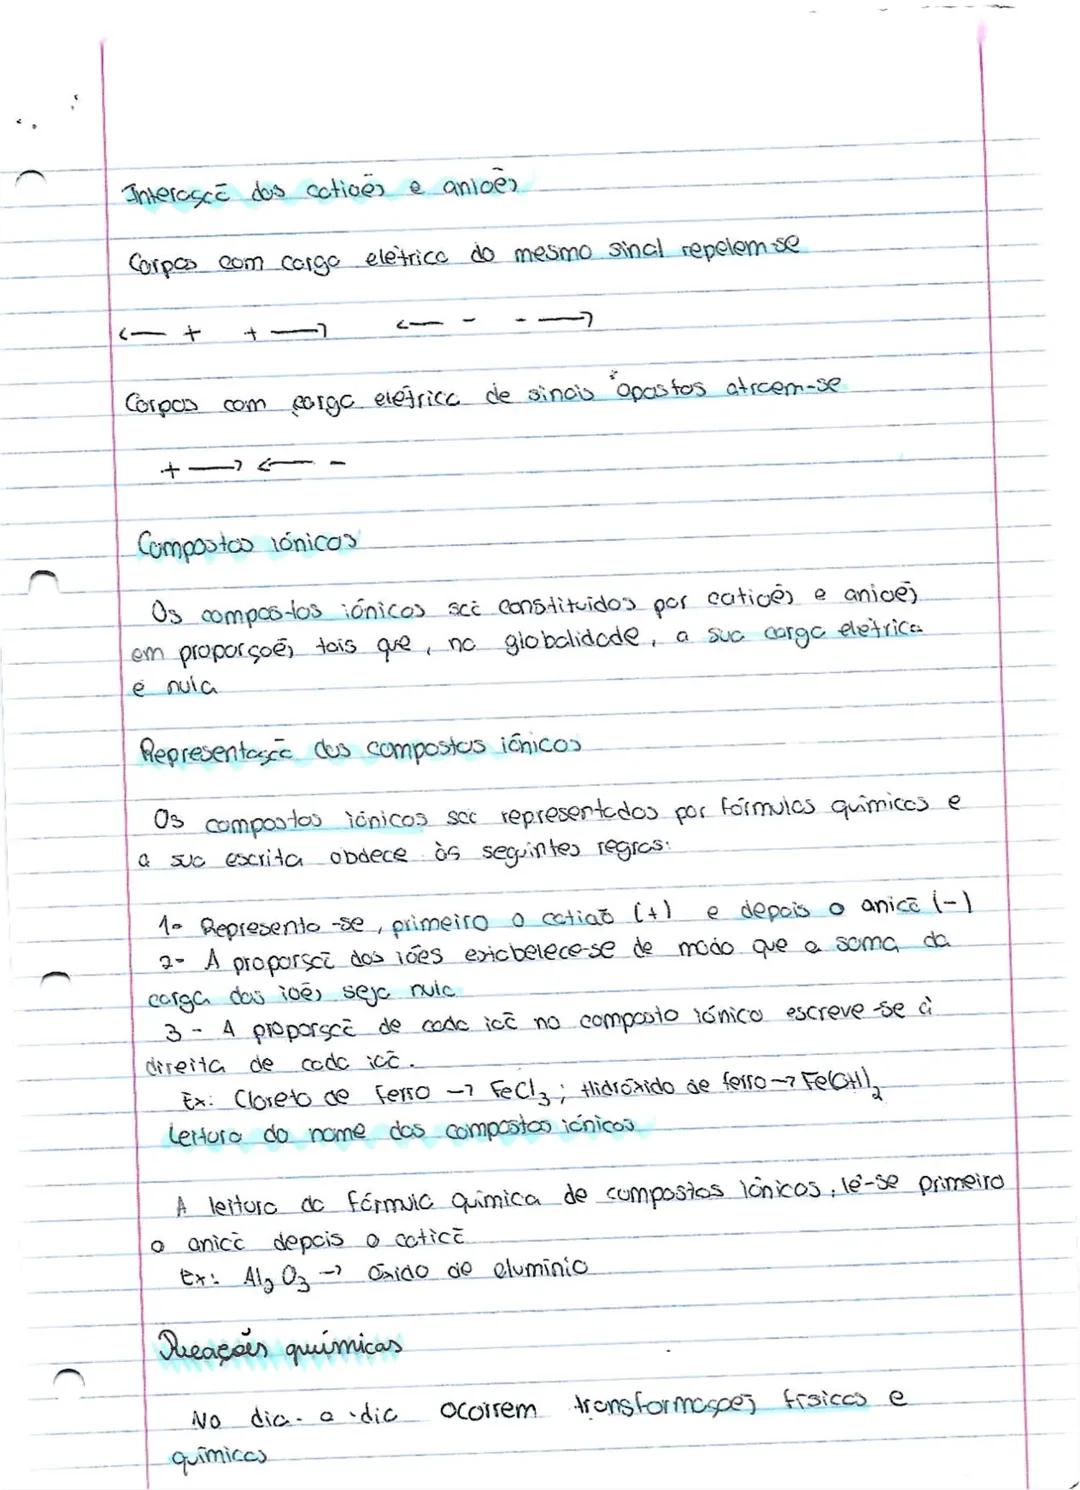 Interação dos catioẽs e anioẽs
Corpos com carga elétrica do mesmo sinal repelem-se
<— + + —> <— - - —>
Corpos com carga elétrica de sinais opostos atraem-se
+ —> <— -
Compostos iónicos
Os compostos iónicos são constituídos por catioẽs e anioẽs
em proporçoẽs tais que, na globalidade, a sua carga elétrica
é nula
Representação dos compostos iónicos
Os compostos iónicos são representados por fórmulas químicas e
a sua escrita obdece às seguintes regras:
1- Representa-se, primeiro o catião (+) e depois o anião (-)
2- A proporsão dos iões estabelece-se de modo que a soma da
carga dos ioẽs seja nula
3 - A proporsão de cada ião no composto iónico escreve-se à
direita de cada ião.
Ex: Cloreto de ferro -> FeCl₃ ; Hidróxido de ferro -> Fe(OH)₂
Leitura do nome dos compostos iónicos
A leitura da fórmula química de compostos iónicos, lê-se primeiro
o anião depois o catião
Ex: Al₂O₃ -> Óxido de alumínio
Reações químicas
No dia-a-dia ocorrem transformações físicas e
químicas